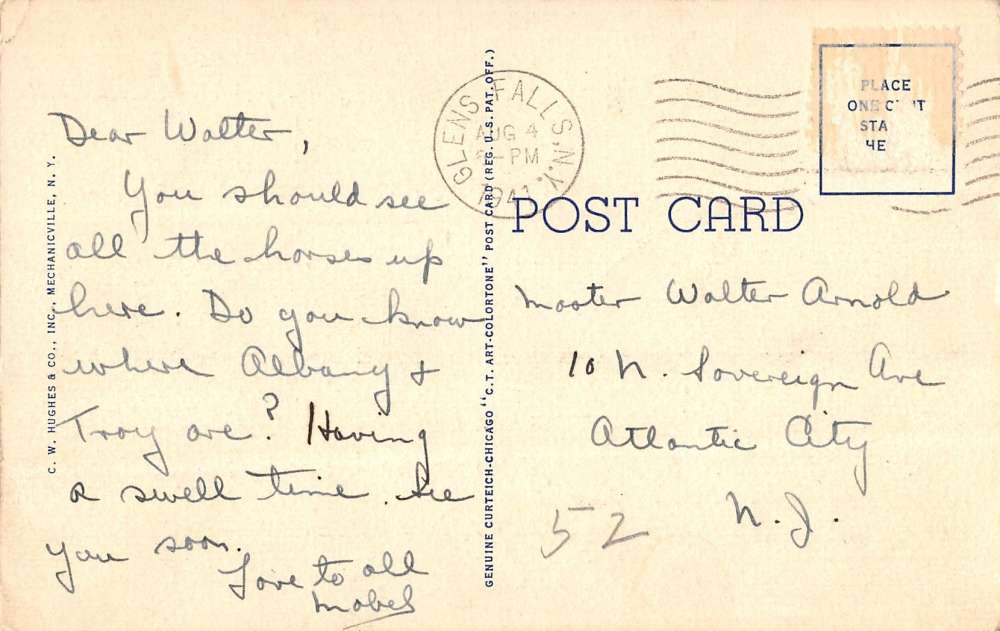 Dear Walter,
You should see
all the horses up
here. Do you know
where Albany &
Troy are? Having
a swell time. See
you soon.
Love to all
Mabel
C. W. HUGHES & CO., INC., MECHANICVILLE, N. Y.
GENUINE CURTEICH-CHICAGO "C.T. ART-COLORTONE" POST CARD (REG. U.S. PAT. OFF.)
GLENS FALLS, N.Y.
AUG 4
PM
1941
PLACE
ONE C
STA
HE
POST CARD
Master Walter Arnold
10 N. Sovereign Ave
Atlantic City
N. J.
52